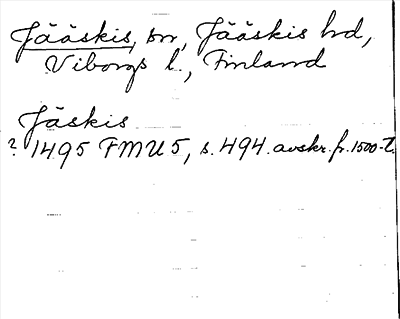 Jääskis, sn, Jääskis hd,
Viborgs l., Finland
Jäskis
? 1495 FMU 5, s. 494. avskr. fr. 1500-t.